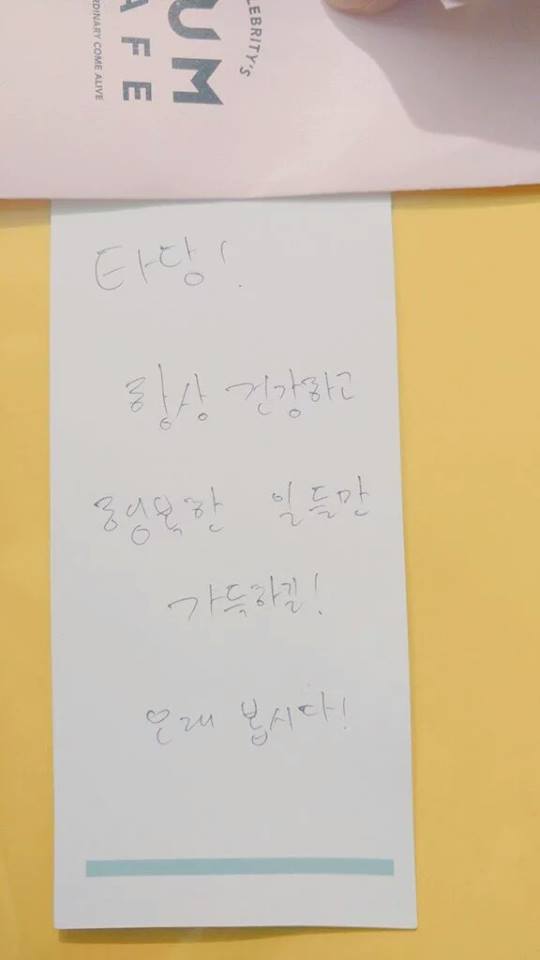 CELEBRITY'S
UM
AFE
RDINARY COME ALIVE
타댱!
항상 건강하고
행복한 일들만
가득하길!
오래 봅시다!